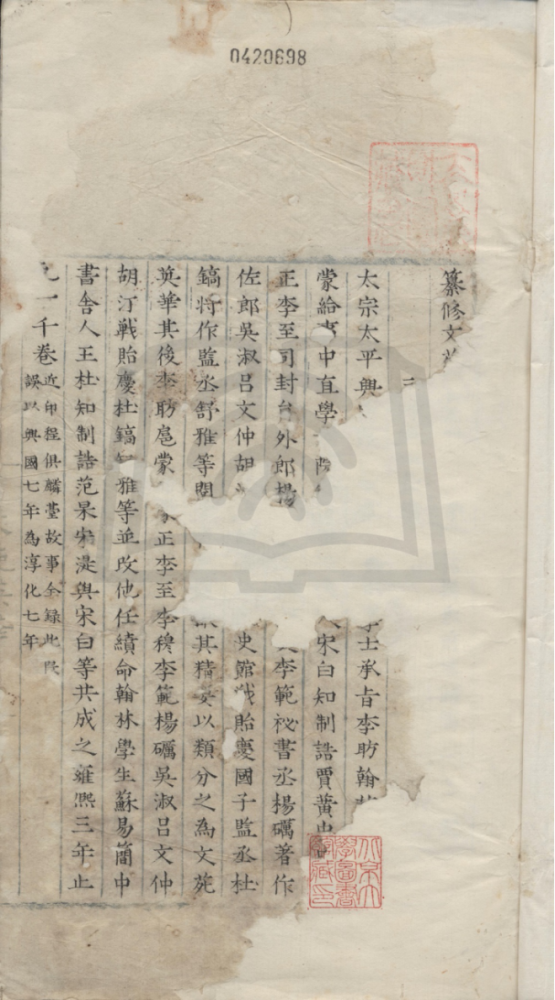 0420698
纂修文
太宗太平興
士承旨李昉翰
蒙給事中直學
宋白知制誥賈黃中
正李至司封員外郎楊
李範祕書丞楊礪著作
佐郎吳淑呂文仲胡
史館戰貽慶國子監丞杜
鎬將作監丞舒雅等閱
其精英以類分之為文苑
英華其後李昉扈蒙
正李至李穆李範楊礪吳淑呂文仲
胡汀戰貽慶杜鎬舒雅等並改他任續命翰林學生蘇易簡中
書舍人王杜知制誥范杲宋湜與宋白等共成之雍熙三年上
一千卷
近印程俱麟臺故事全錄此段
誤以興國七年為淳化七年